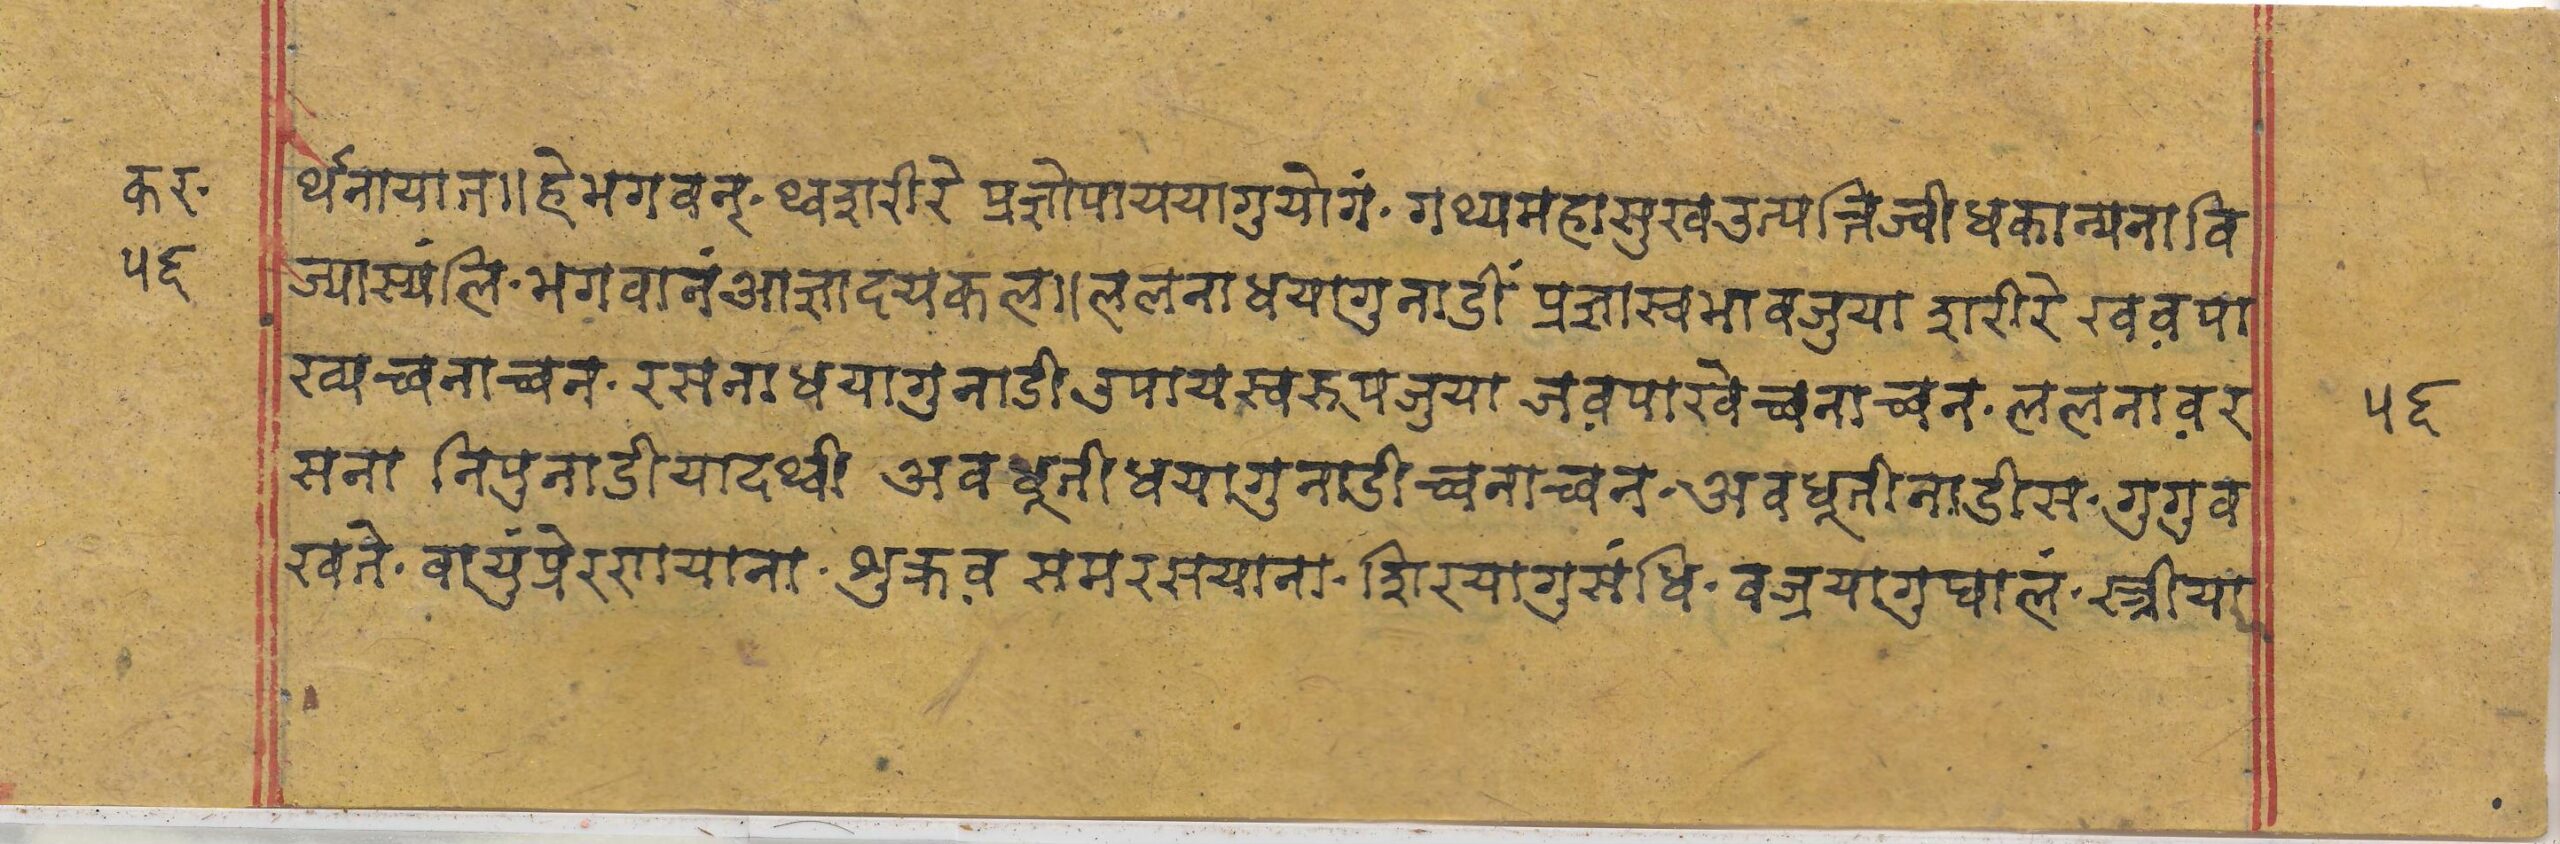 कर॰
र्थनायात॥हेभगवन्॰थ्वशरीरे प्रज्ञोपाययागुयोगं॰गथ्यमहासुखउत्पत्तिज्वीधकान्यनावि
५६
ज्यास्यंलि॰भगवानंआज्ञादयकल॥ललनाधयागुनाडीं प्रज्ञास्वभावजुया शरीरे खव़पा
ख्यच्वनाच्वन॰रसनाधयागुनाडीउपायस्वरूपजुया जव़पाखेच्वनाच्वन॰ललनाव़र
५६
सना निपुनाडीयादथ्वी अवधूतीधयागुनाडीच्वनाच्वन॰अवधूतीनाडीस॰गुगुव
खते॰वायुंप्रेरणायाना॰शुक्रव़ समरसयाना॰शिरयागुसंधि॰वज्रयागुघालं॰स्त्रीया